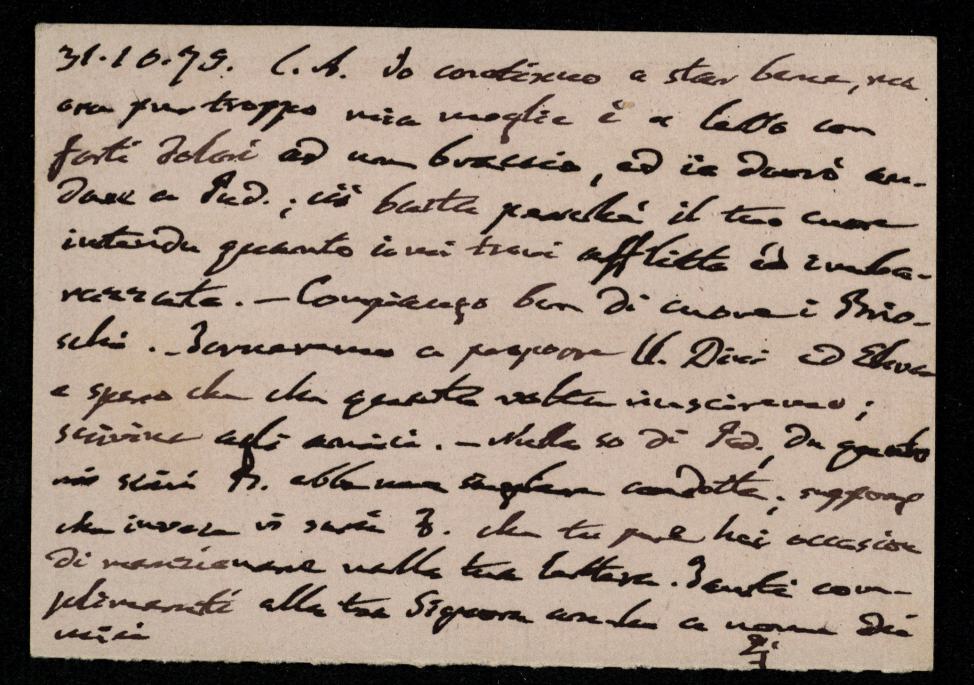 31.10.79. C. A. Io continuo a star bene, ma
ora pur troppo mia moglie è a letto con
forti dolori ad un braccio, ed io dovrò an-
dare a Pad.; ciò basta perché il tuo cuore
intenda quanto io mi trovi afflitto ed imba-
razzato. — Compiango ben di cuore i Brio-
schi. — Torneremo a proporre U. Dini ed
e spero che che questa volta riusciremo;
scrivine agli amici. — Nulla so di Pad., da quanto
mi scrisse ebbe una condotta; suppongo
che invece vi sarà che tu pure hai occasione
di menzionare nella tua lettera. Tanti com-
plimenti alla tua Signora anche a nome dei
miei